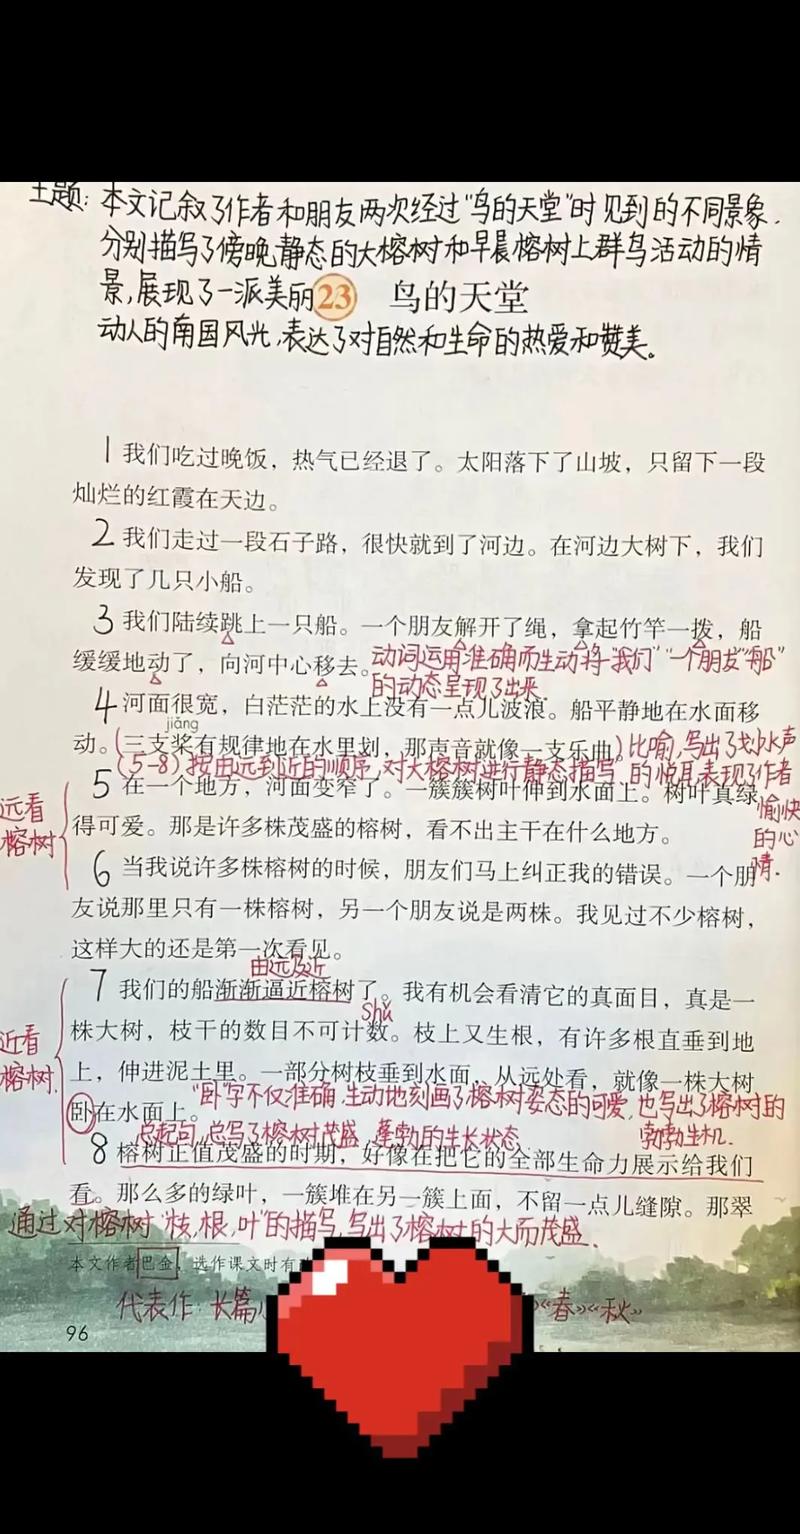 主题：本文记叙了作者和朋友两次经过"鸟的天堂"时见到的不同景象，
分别描写了傍晚静态的大榕树和早晨榕树上群鸟活动的情
景，展现了一派美丽
23 鸟的天堂
动人的南国风光，表达了对自然和生命的热爱和赞美。
1 我们吃过晚饭，热气已经退了。太阳落下了山坡，只留下一段
灿烂的红霞在天边。
2 我们走过一段石子路，很快就到了河边。在河边大树下，我们
发现了几只小船。
3 我们陆续跳上一只船。一个朋友解开了绳，拿起竹竿一拨，船
缓缓地动了，向河中心移去。
动词运用准确而生动将"我们""一个朋友""船"
的动态呈现了出来.
4 河面很宽，白茫茫的水上没有一点儿波浪。船平静地在水面移
jiǎng
动。(三支桨有规律地在水里划，那声音就像一支乐曲)
比喻，写出了划水声
的悦耳，表现了作者
愉快
的心
情.
(5-8)按由远到近的顺序，对大榕树进行静态描写。
远看
榕树
5 在一个地方，河面变窄了。一簇簇树叶伸到水面上。树叶真绿
得可爱。那是许多株茂盛的榕树，看不出主干在什么地方。
6 当我说许多株榕树的时候，朋友们马上纠正我的错误。一个朋
友说那里只有一株榕树，另一个朋友说是两株。我见过不少榕树，
这样大的还是第一次看见。
由远及近
近看
榕树.
7 我们的船渐渐逼近榕树了。我有机会看清它的真面目，真是一
shǔ
株大树，枝干的数目不可计数。枝上又生根，有许多根直垂到地
上，伸进泥土里。一部分树枝垂到水面，从远处看，就像一株大树
卧在水面上。
"卧"字不仅准确.生动地刻画了榕树姿态的可爱，也写出了榕树的
勃勃生机.
总起句，总写了榕树茂盛、蓬勃的生长状态
8 榕树正值茂盛的时期，好像在把它的全部生命力展示给我们
看。那么多的绿叶，一簇堆在另一簇上面，不留一点儿缝隙。那翠
通过对榕树"枝，根，叶"的描写，写出了榕树的大而茂盛.
本文作者巴金，选作课文时有
代表作：长篇
《春》《秋》
96